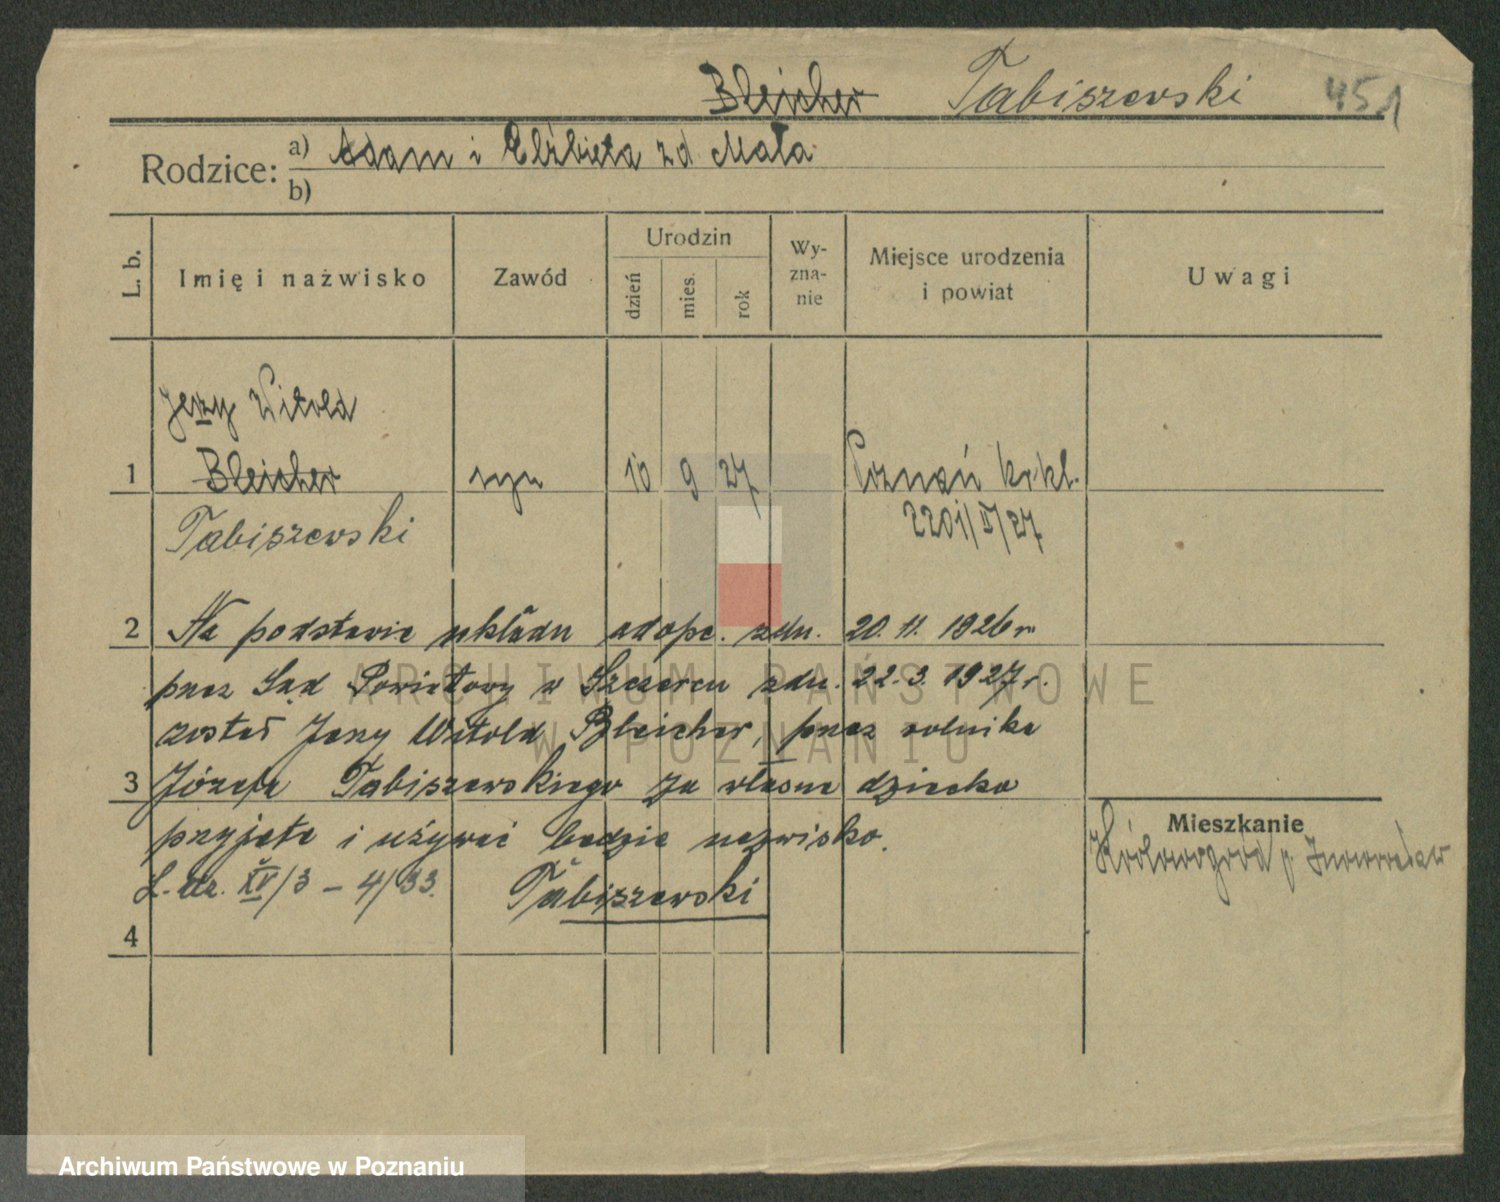 Bleicher Tabiszewski 451
Rodzice: a) Adam i Elżbieta zd Mała
b)
L. b. Imię i nazwisko Zawód Urodzin dzień mies. rok Wy-zna-nie Miejsce urodzenia i powiat Uwagi
Jerzy Witold
1 Bleicher syn 10 9 27 Poznań kr kl.
Tabiszewski 2201/II/27
2 Na podstawie układu adopc. zdn. 20. 11. 1926 r
przez Sąd Powiatowy w Szczercu zdn. 22. 3. 1927 r.
został Jerzy Witold Bleicher, przez rolnika
3 Józefa Tabiszewskiego za własne dziecko
przyjęte i używać będzie nazwisko.
Mieszkanie
L. dz. XV/3 – 4/33. Tabiszewski
p. Inowrocław
4
ARCHIWUM PAŃSTWOWE
W POZNANIU
Archiwum Państwowe w Poznaniu